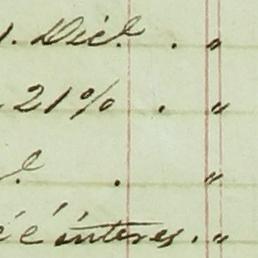 1. Dicl . "
21% . "
l . "
é é interes. . "